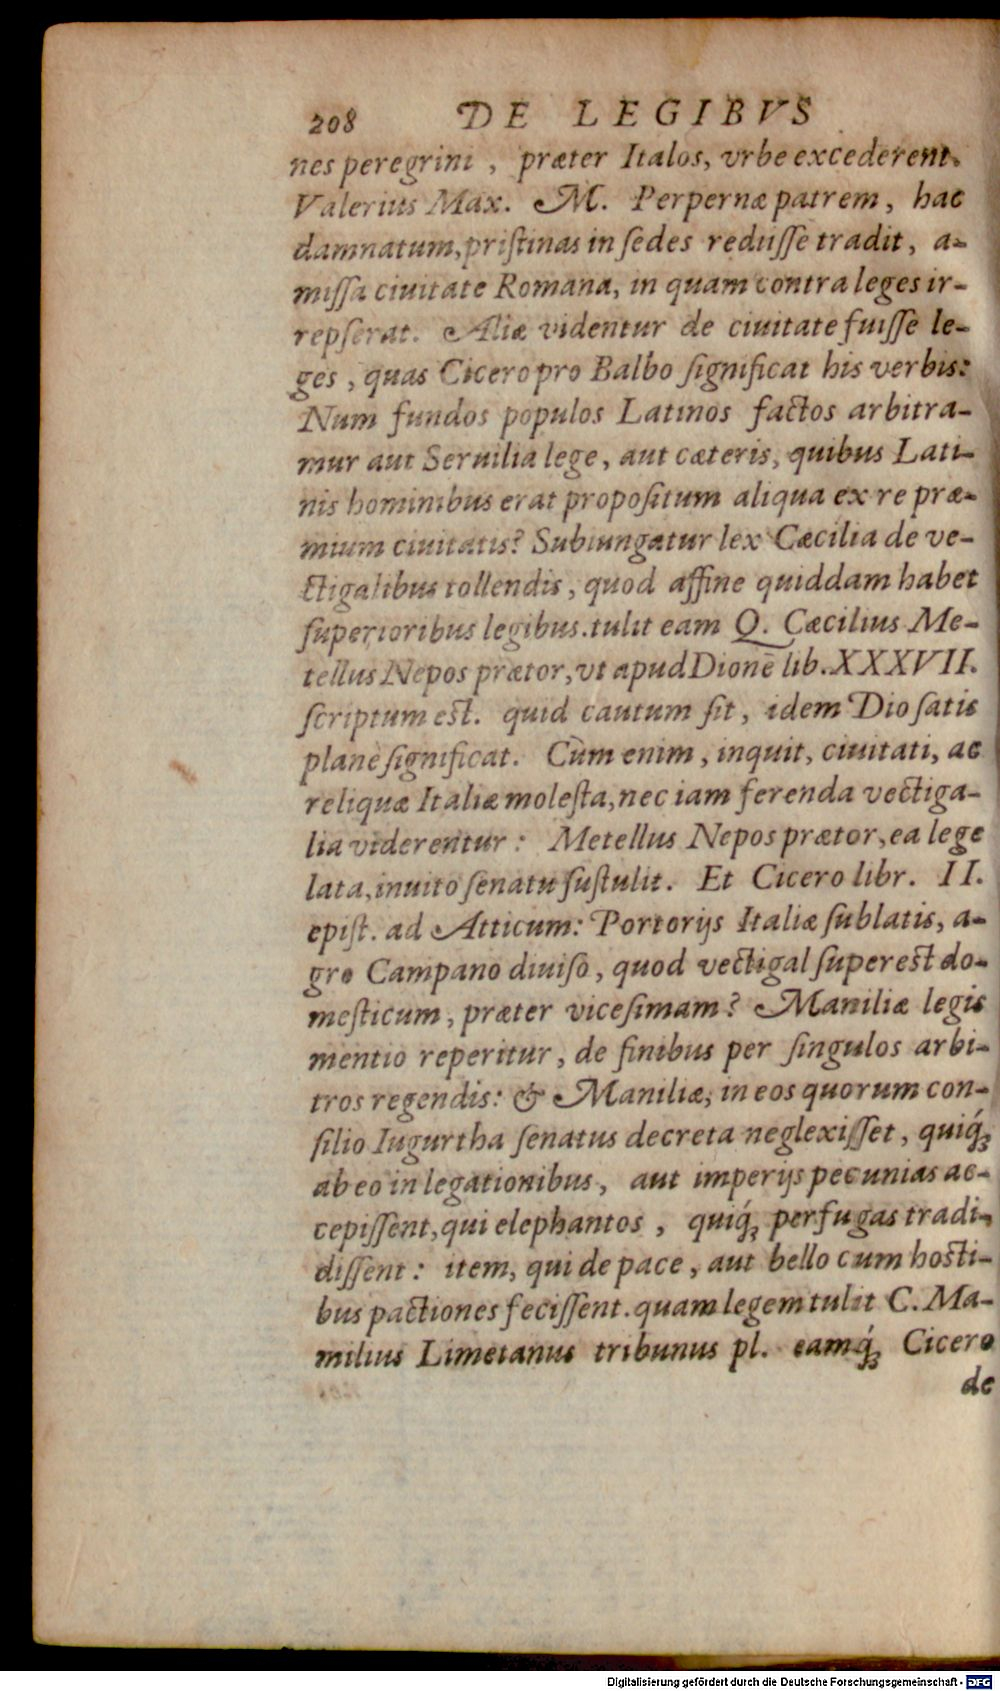 208 DE LEGIBVS
nes peregrini, præter Italos, vrbe excederent.
Valerius Max. M. Perpernæ patrem, hac
damnatum, pristinas in ſedes redüſſe tradit, a-
miſſa ciuitate Romana, in quam contra leges ir-
repſerat. Aliæ videntur de ciuitate fuiſſe le-
ges, quas Cicero pro Balbo ſignificat his verbis:
Num fundos populos Latinos factos arbitra-
mur aut Seruilia lege, aut cæteris, quibus Lati-
nis hominibus erat propoſitum aliqua ex re præ-
mium ciuitatis? Subiungatur lex Cæcilia de ve-
ctigalibus tollendis, quod affine quiddam habet
ſuperioribus legibus. tulit eam Q. Cæcilius Me-
tellus Nepos prætor, vt apud Dionē lib. XXXVII.
ſcriptum est. quid cautum ſit, idem Dio ſatis
planè ſignificat. Cùm enim, inquit, ciuitati, ac
reliquæ Italiæ moleſta, nec iam ferenda vectiga-
lia viderentur: Metellus Nepos prætor, ea lege
lata, inuito ſenatu ſuſtulit. Et Cicero libr. II.
epiſt. ad Atticum: Portorijs Italiæ ſublatis, a-
gro Campano diuiſo, quod vectigal ſuperest do-
meſticum, præter viceſimam? Maniliæ legis
mentio reperitur, de finibus per ſingulos arbi-
tros regendis: & Maniliæ, in eos quorum con-
ſilio Iugurtha ſenatus decreta neglexiſſet, quiq́;
ab eo in legationibus, aut imperijs pecunias ac-
cepiſſent, qui elephantos, quiq́; perfugas tradi-
diſſent: item, qui de pace, aut bello cum hosti-
bus pactiones feciſſent. quam legem tulit C. Ma-
milius Limetanus tribunus pl. eamq́; Cicero
de
Digitalisierung gefördert durch die Deutsche Forschungsgemeinschaft - DFG